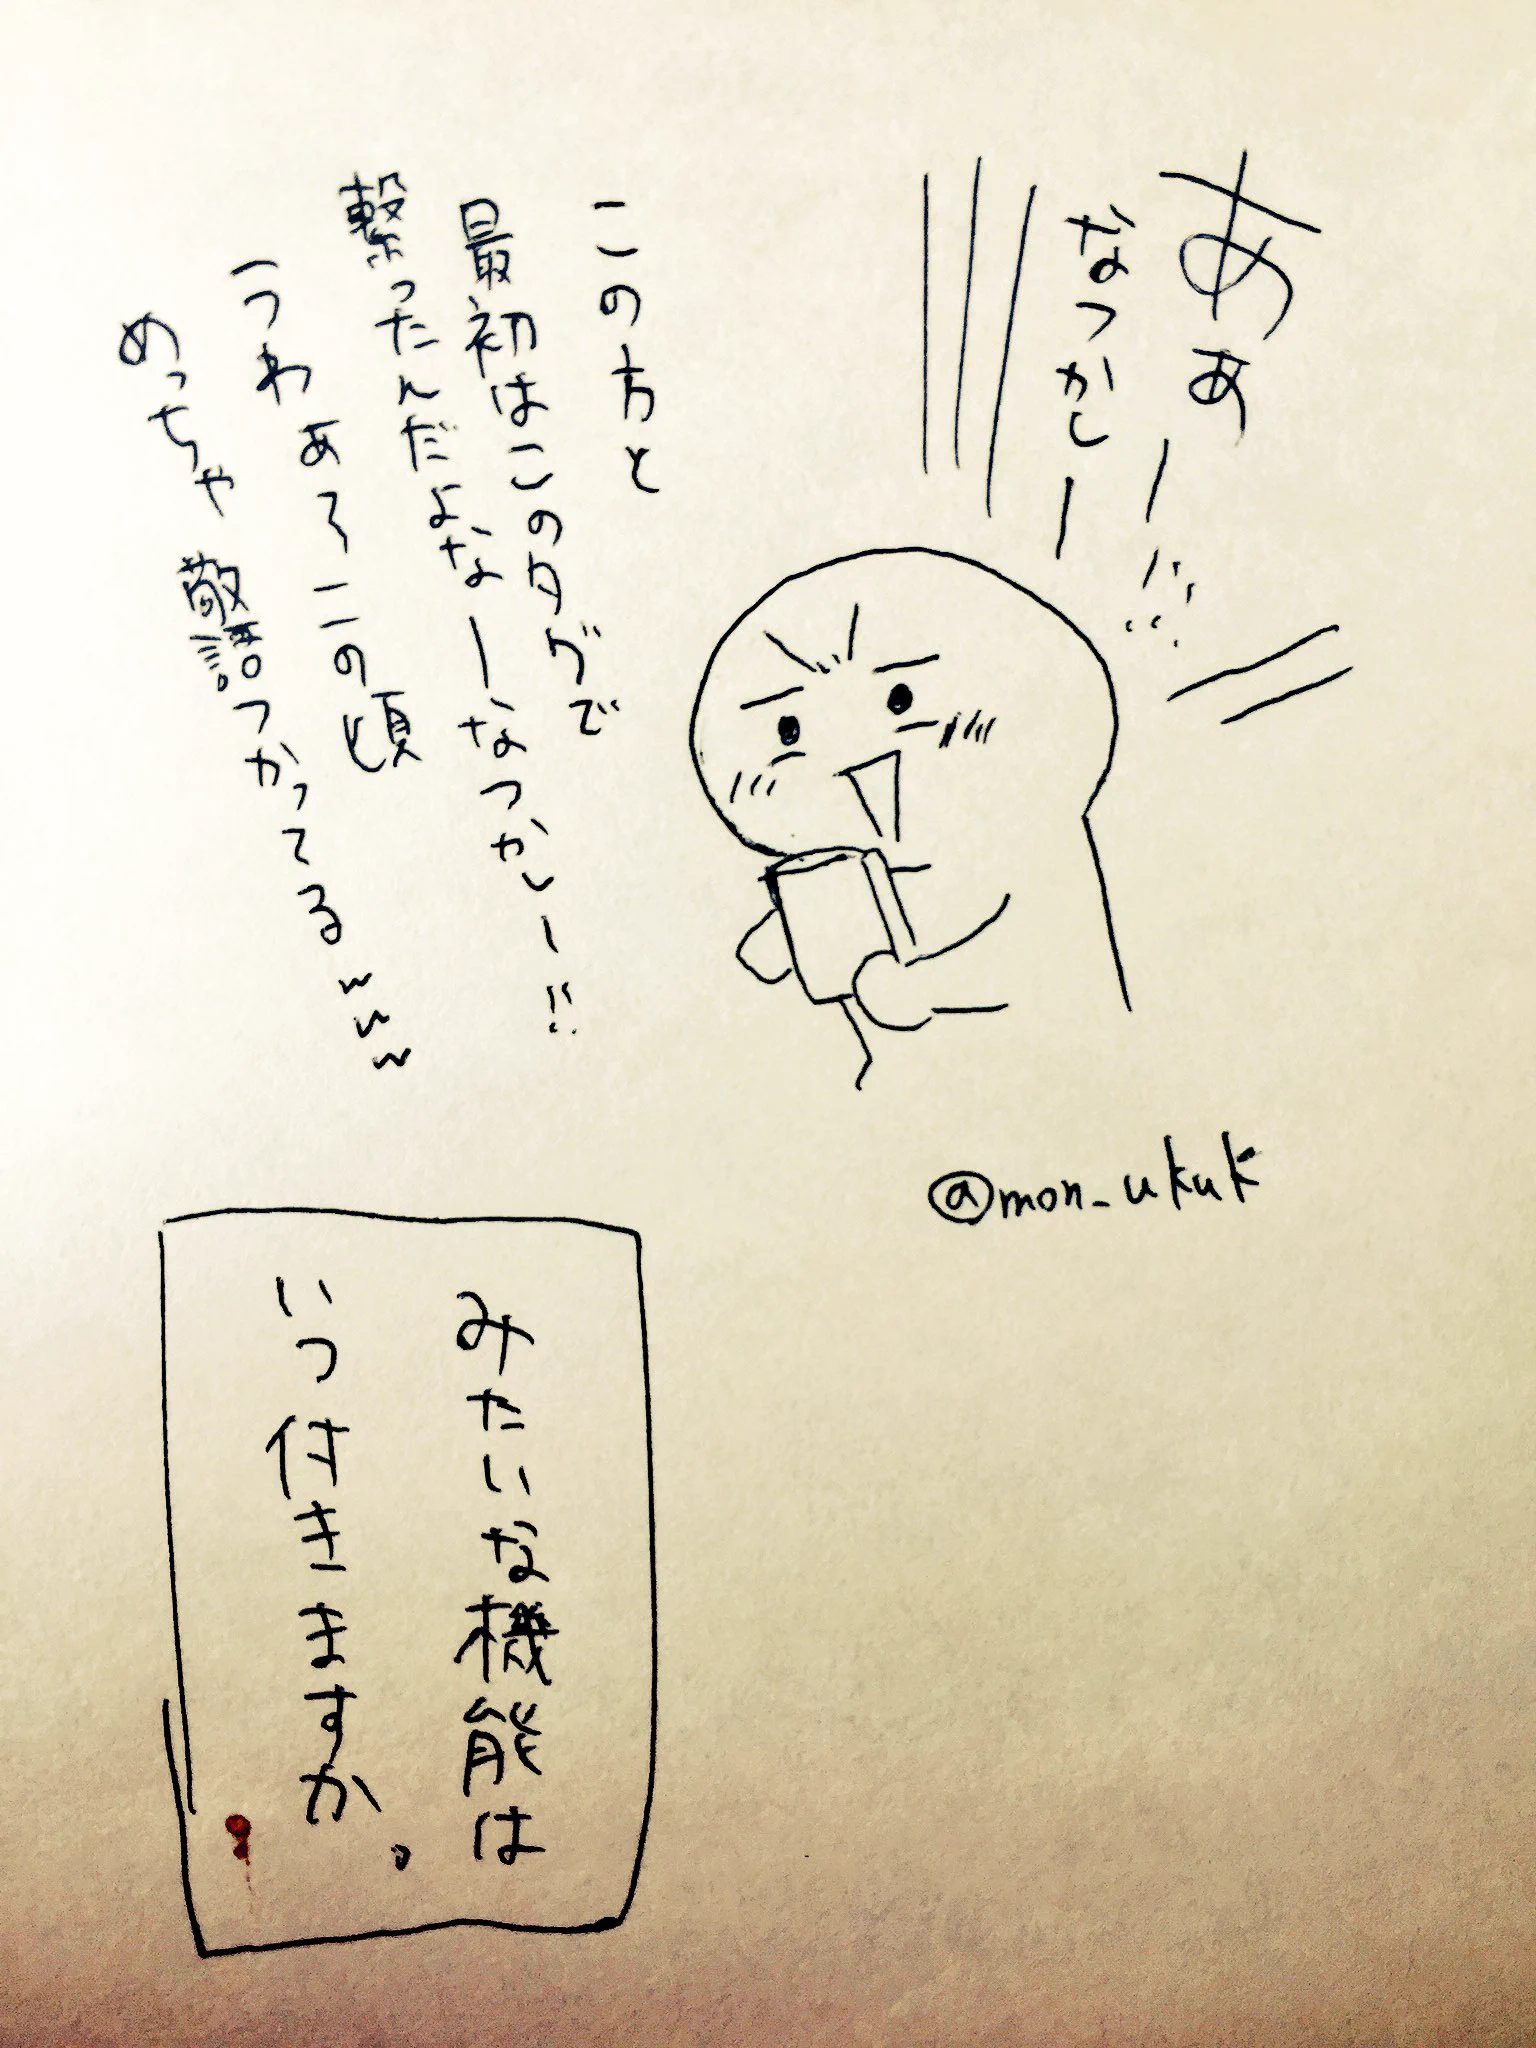 あぁー!!
なつかしー
この方と
最初はこのタグで
繋ったんだよなーなつかしー!!
うわぁてこの頃
めっちゃ敬語つかってるwww
@mon_ukuk
みたいな機能は
いつ付きますか。